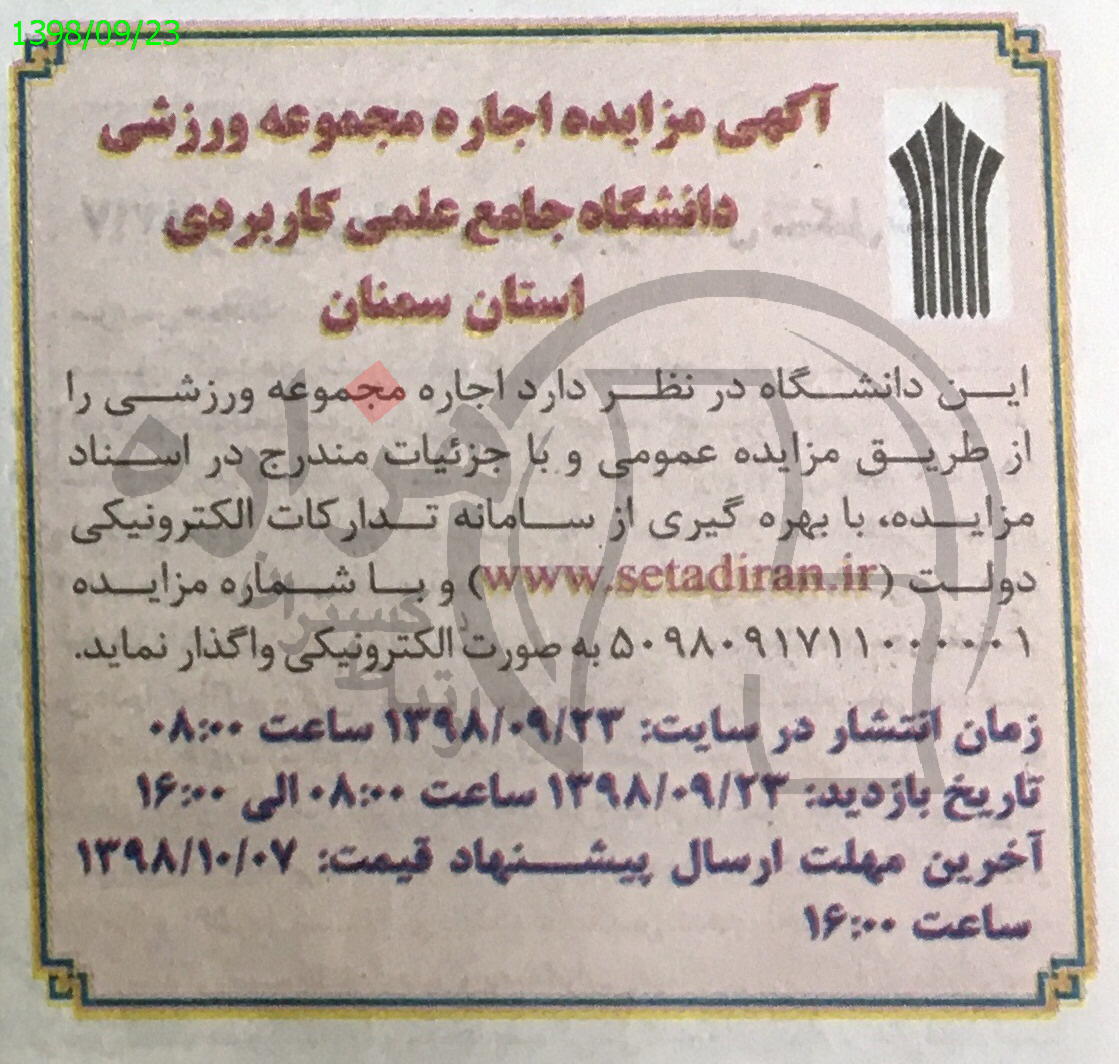 1398/09/23
آگهی مزایده اجاره مجموعه ورزشی
دانشگاه جامع علمی کاربردی
استان سمنان
ایـــن دانشـــگاه در نظـــر دارد اجاره مجموعه ورزشـــی را
از طریـــق مزایده عمومی و با جزئیات مندرج در اســـناد
مزایـــده، با بهره گیری از ســـامانه تـــدارکات الکترونیکی
دولـــت (www.setadiran.ir) و بـــا شـــماره مزایـــده
۵۰۹۸۰۹۱۷۱۱۰۰۰۰۰۱ به صورت الکترونیکی واگذار نماید.
زمان انتشار در سایت: ۱۳۹۸/۰۹/۲۳ ساعت ۰۸:۰۰
تاریخ بازدید: ۱۳۹۸/۰۹/۲۳ ساعت ۰۸:۰۰ الی ۱۶:۰۰
آخرین مهلت ارسال پیشـــنهاد قیمت: ۱۳۹۸/۱۰/۰۷
ساعت ۱۶:۰۰